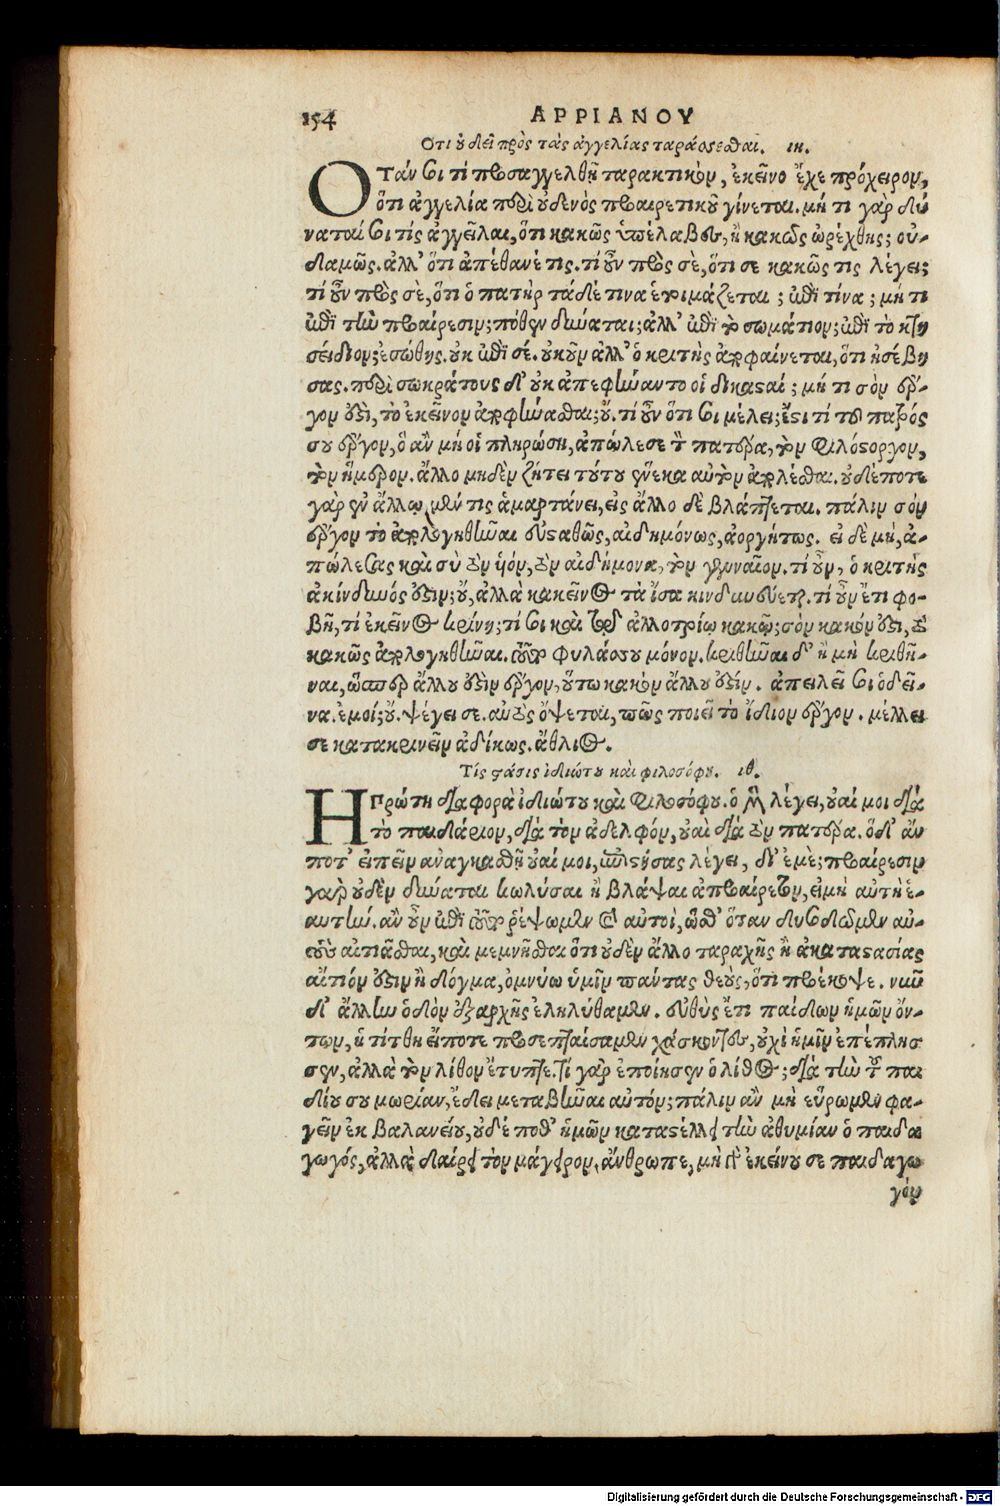 154
ΑΡΡΙΑΝΟΥ
Ὅτι οὐ δεῖ πρὸς τὰς ἀγγελίας ταράσσεσθαι. ιη.
ΟΤάν σοι τί προσαγγελθῇ ταρακτικὸν, ἐκεῖνο ἔχε πρόχειρον,
ὅτι ἀγγελία περὶ οὐδενὸς προαιρετικοῦ γίνεται. μή τι γὰρ δύ-
ναταί σοι τίς ἀγγεῖλαι, ὅτι κακῶς ὑπέλαβες, ἢ κακῶς ὠρέχθης; οὐ-
δαμῶς. ἀλλ' ὅτι ἀπέθανέ τις. τί οὖν πρὸς σὲ, ὅτι σε κακῶς τις λέγει;
τί οὖν πρὸς σὲ, ὅτι ὁ πατὴρ τάδε τινα ἑτοιμάζεται; ἐπὶ τίνα; μή τι
ἐπὶ τὴν προαίρεσιν; πόθεν δύναται; ἀλλ' ἐπὶ τὸ σωμάτιον; ἐπὶ τὸ κτη
σείδιον; ἐσώθης. οὐκ ἐπὶ σέ. οὐκοῦν ἀλλ' ὁ κριτὴς ἀποφαίνεται, ὅτι ἠσέβη
σας. περὶ σωκράτους δ' οὐκ ἀπεφήναντο οἱ δικασταί; μή τι σὸν ἔρ-
γον ἐστὶ, τὸ ἐκεῖνον ἀποφήνασθαι; οὔ. τί οὖν ὅτι σοι μέλει; ἔστι τί τοῦ πατρός
σου ἔργον, ὃ ἂν μὴ οἱ πληρώσῃ, ἀπώλεσε τὸν πατέρα, τὸν φιλόστοργον,
τὸν ἥμερον. ἄλλο μηδὲν ζήτει τούτου ἕνεκα αὐτὸν ἀπολέσθαι. οὐδέποτε
γὰρ ἐν ἄλλῳ μέν τις ἁμαρτάνει, εἰς ἄλλο δὲ βλάπτεται. πάλιν σὸν
ἔργον τὸ ἀπολογηθῆναι εὐσταθῶς, αἰδημόνως, ἀοργήτως. εἰ δὲ μή, ἀ-
πώλεσας καὶ σὺ τὸν ὑιόν, τὸν αἰδήμονα, τὸν γενναῖον. τί οὖν, ὁ κριτής
ἀκίνδυνός ἐστιν; οὔ, ἀλλὰ κακεῖνος τὰ ἴσα κινδυνεύεται. τί οὖν ἔτι φο-
βῇ, τί ἐκεῖνος κρίνῃ; τί σοι καὶ τῷ ἀλλοτρίῳ κακῷ; σὸν κακόν ἐστι, τὸ
κακῶς ἀπολογηθῆναι. τοῦτο φυλάσσου μόνον. κριθῆναι δ' ἢ μὴ κριθῆ-
ναι, ὥσπερ ἄλλου ἐστὶν ἔργον, οὕτω κακὸν ἄλλου ἐστίν. ἀπειλεῖ σοι ὁ δεῖ-
να. ἐμοί; οὔ. ψέγει σε. αὐτὸς ὄψεται, πῶς ποιεῖ τὸ ἴδιον ἔργον. μέλλει
σε κατακρινεῖν ἀδίκως. ἄθλιος.
Τίς στάσις ἰδιώτου καὶ φιλοσόφου. ιθ.
Η Πρώτη διαφορὰ ἰδιώτου καὶ φιλοσόφου. ὁ μὲν λέγει, οὐαί μοι διὰ
τὸ παιδάριον, διὰ τὸν ἀδελφόν, οὐαὶ διὰ τὸν πατέρα. ὁ δ' ἄν
ποτ' εἰπεῖν ἀναγκασθῇ οὐαί μοι, ἐπιστήσας λέγει, δι' ἐμὲ; προαίρεσιν
γὰρ οὐδὲν δύναται κωλύσαι ἢ βλάψαι ἀπροαίρετον, εἰ μὴ αὐτὴ ἑ-
αυτήν. ἂν οὖν ἐπὶ τοῦτο ῥέψωμεν καὶ αὐτοὶ, ὥσθ' ὅταν δυσοδῶμεν αὑ-
τοὺς αἰτιᾶσθαι, καὶ μεμνῆσθαι ὅτι οὐδὲν ἄλλο ταραχῆς ἢ ἀκαταστασίας
αἴτιόν ἐστιν ἢ δόγμα, ὀμνύω ὑμῖν πάντας θεοὺς, ὅτι προέκοψε. νῦν
δ' ἄλλην ὁδὸν ἐξαρχῆς ἐληλύθαμεν. εὐθὺς ἔτι παίδων ἡμῶν ὄν-
των, ἡ τίτθη εἴποτε προσεπταίσαμεν χάσκοντες, οὐχὶ ἡμῖν ἐπέπλησ
σεν, ἀλλὰ τὸν λίθον ἔτυπτε. τί γὰρ ἐποίησεν ὁ λίθος; διὰ τὴν τοῦ παι
δίου σου μωρίαν, ἔδει μεταβῆναι αὐτόν; πάλιν ἂν μὴ εὕρωμεν φα-
γεῖν ἐκ βαλανείου, οὐδέ ποθ' ἡμῶν καταστέλλει τὴν ἀθυμίαν ὁ παιδα
γωγός, ἀλλὰ δαίρει τὸν μάγειρον, ἄνθρωπε, μὴ γὰρ ἐκείνου σε παιδαγω
γόν
Digitalisierung gefördert durch die Deutsche Forschungsgemeinschaft - DFG